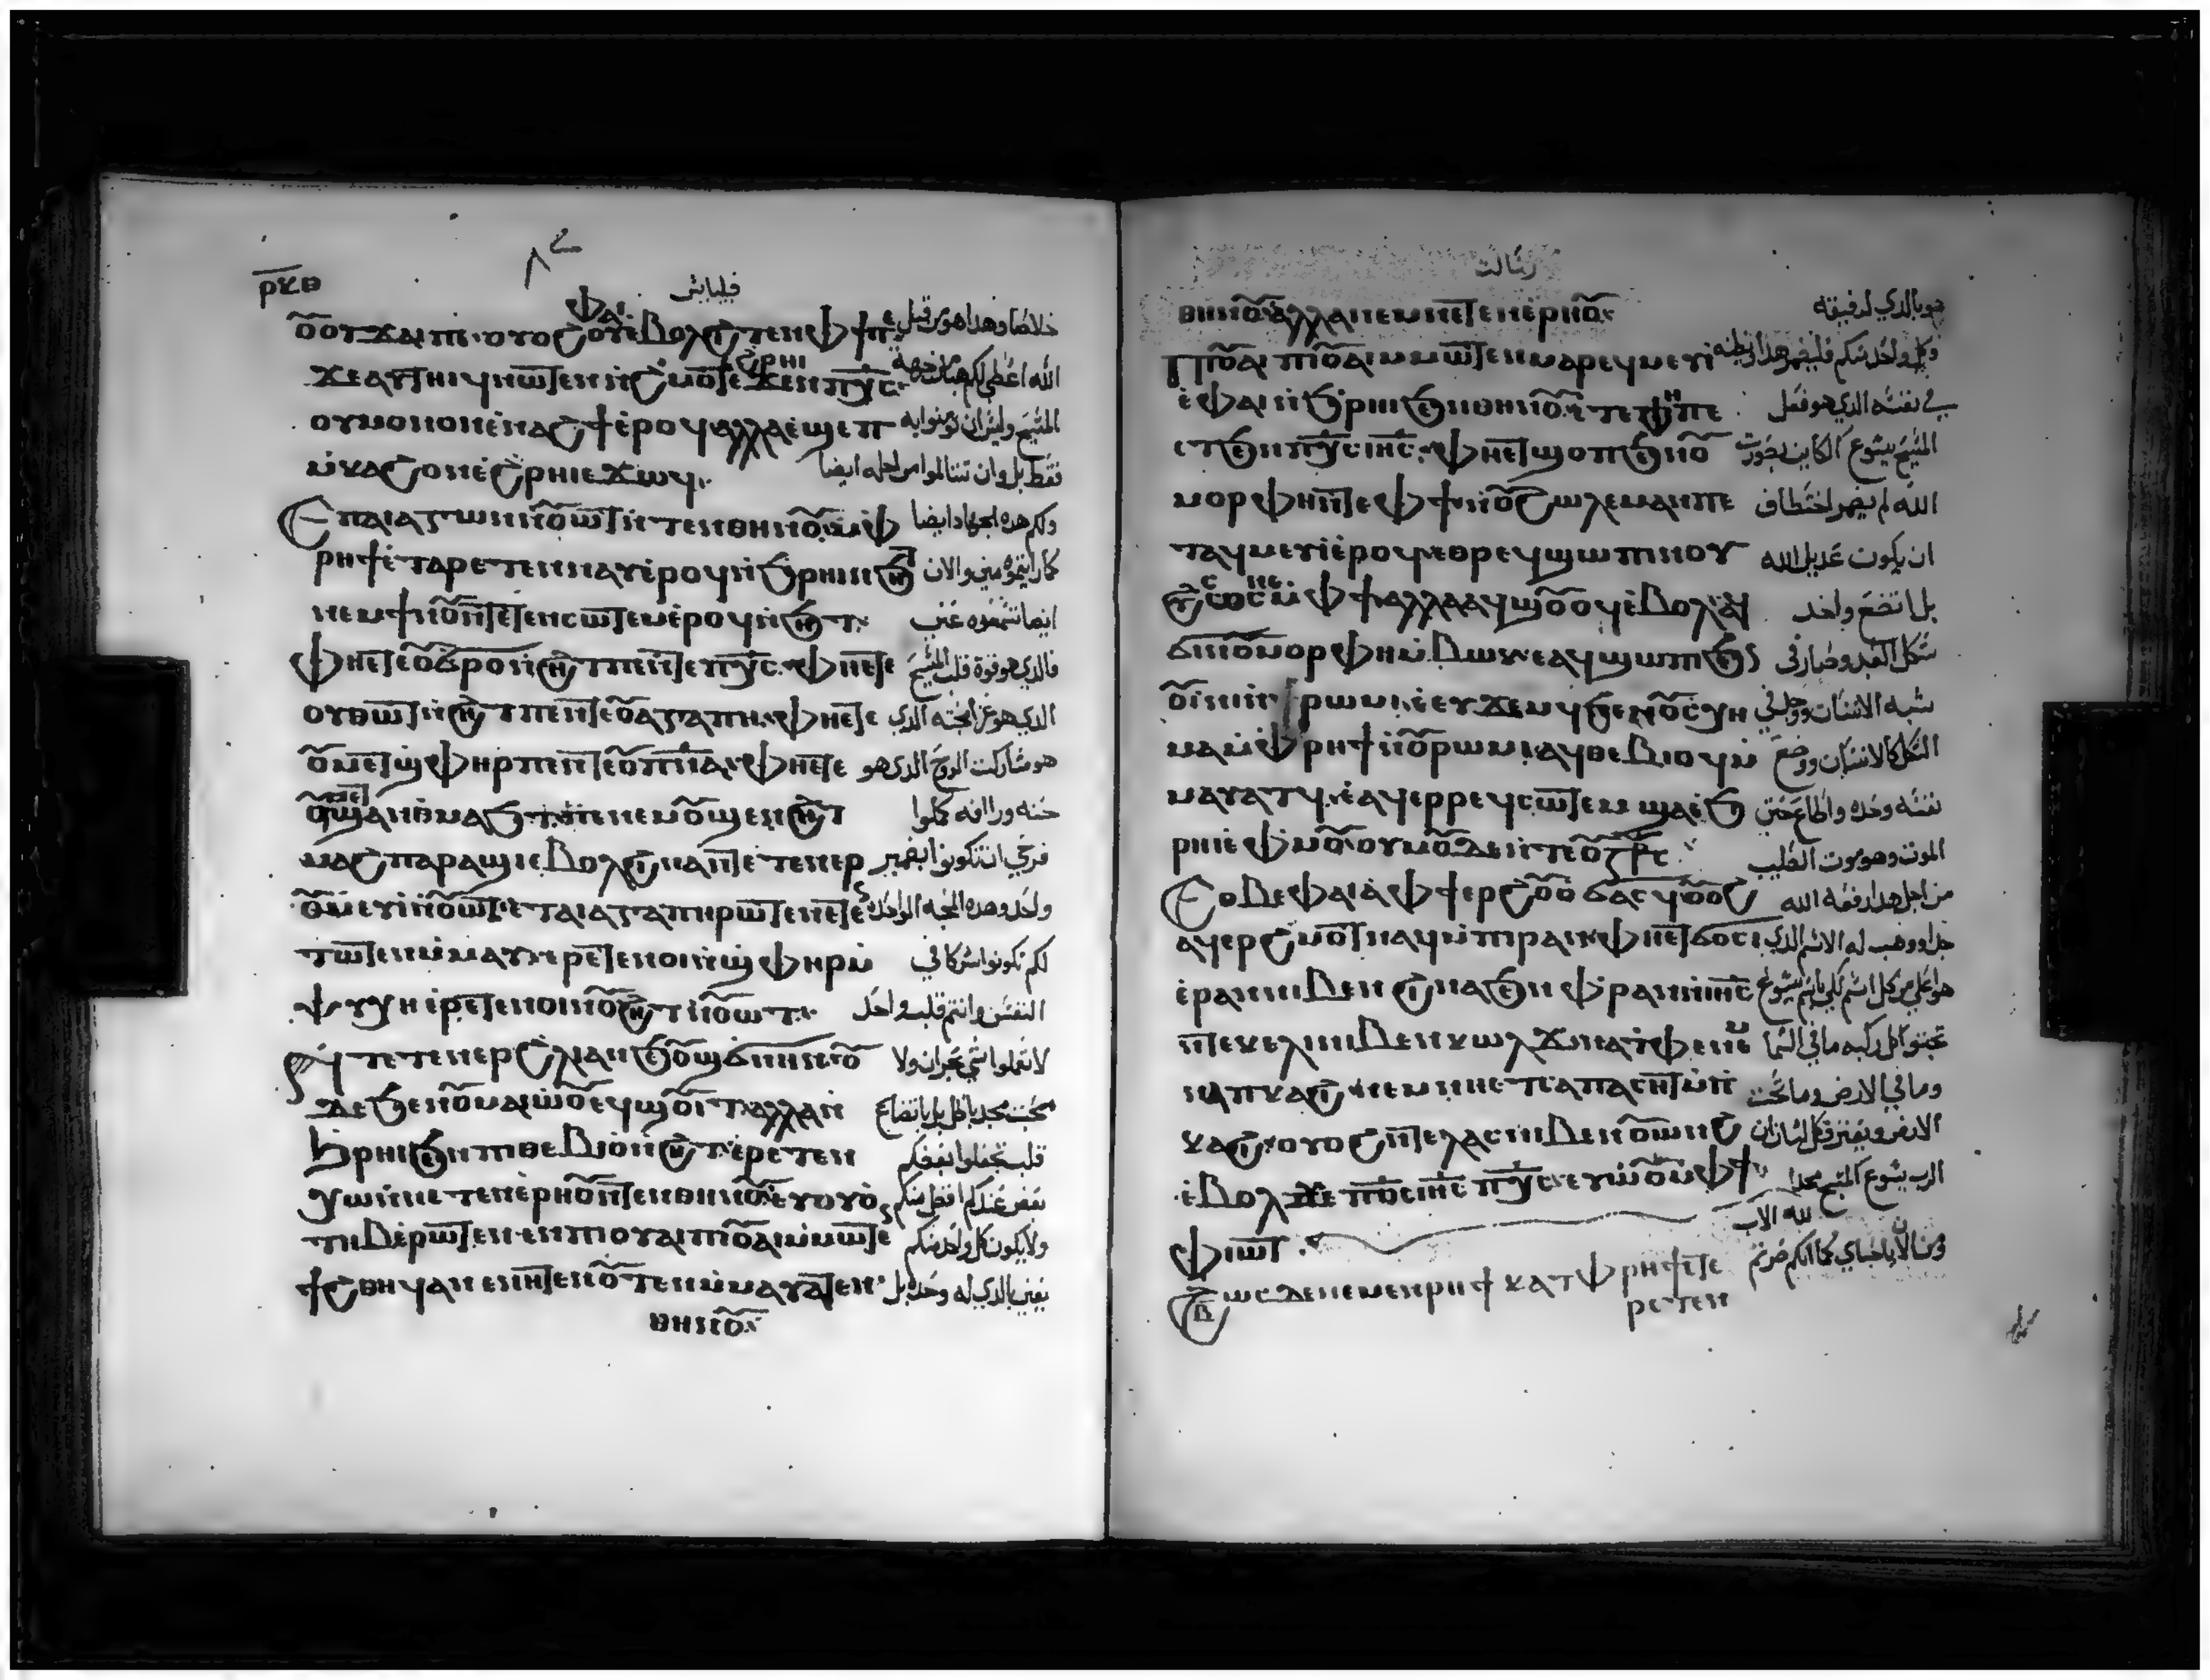 ⲣⲕⲑ
فيلبايس
ⲟ̅ⲟⲩϫⲁⲓ ⲡⲉ· ⲟⲩⲟϩ ⲫⲁⲓ ⲟⲩⲉⲃⲟⲗϩⲓⲧⲉⲛ ⲫϯ ⲡⲉ خلاصا وهدا هو من قبل
ϫⲉ ⲁⲩⲧⲏⲓϥ ⲛⲱⲧⲉⲛ ⲛϩⲙⲟⲧ ⲉϩⲣⲏⲓ ϫⲉⲛ ⲡⲭ̅ⲥ الله اعطى لكم هبات من جهة
ⲟⲩⲙⲟⲛⲟⲛ ⲉⲛⲁϩϯ ⲉⲣⲟϥ ⲁⲗⲗⲁ ⲉϣⲉⲡ المسيح وليس ان تومنوا به
ⲙⲕⲁϩ ⲟⲛ ⲉϩⲣⲏⲓ ⲉϫⲱϥ فقط بل وان تتالموا من اجله ايضا
ⲉⲡⲁⲓⲁⲅⲱⲛ ⲛⲟⲩⲱⲧ ⲛⲧⲉⲛ ⲑⲏⲛⲟⲩ ⲙⲫ ولكم هده الجهاد ايضا
ⲣⲏϯ ⲉⲧⲁⲣⲉⲧⲉⲛⲛⲁⲩ ⲉⲣⲟϥ ⲛϧⲣⲏⲓ ⲛϧⲏⲧ كما رايتموه مني والان
ⲛⲉⲙ ϯⲛⲟⲩ ⲧⲉⲧⲉⲛⲥⲱⲧⲉⲙ ⲉⲣⲟϥ ⲛϧⲏⲧ ايضا تسمعوه عني
ⲫⲏ ⲉⲧⲉ ⲟⲩϭⲣⲟ ⲛϩⲏⲧ ⲡⲉ ⲛⲧⲉ ⲡⲭ̅ⲥ ⲫⲏ ⲉⲧⲉ فالدي هو قوة قلب المسيح
ⲟⲩⲑⲱⲧ ⲛϩⲏⲧ ⲡⲉ ⲛⲧⲉ ⲟⲩⲁⲅⲁⲡⲏ ⲫⲏ ⲉⲧⲉ الدي هو عزا محبته الدي
ⲟⲩⲙⲉⲧϣⲫⲏⲣ ⲡⲉ ⲛⲧⲉ ⲟⲩⲡ̅ⲛ̅ⲁ ⲫⲏ ⲉⲧⲉ هو مشاركت الروح الدي هو
ⲟⲩⲙⲉⲧϣⲁⲛⲑⲙⲁϧⲧ ⲡⲉ ⲛⲉⲙ ⲟⲩϣⲉⲛϩⲏⲧ حنه ورافه كملوا
ⲙⲁϩ ⲡⲁⲣⲁϣⲓ ⲉⲃⲟⲗ ϩⲓⲛⲁ ⲛⲧⲉⲧⲉⲛⲉⲣ فرحي ان تكونوا بضمير
ⲟⲩⲙⲉⲩⲓ ⲛⲟⲩⲱⲧ ⲉⲧⲁⲓⲁⲅⲁⲡⲏ ⲣⲱ ⲧⲉⲛⲉⲛⲧⲉ واحد وهده المحبه الواحده
ⲧⲱⲧⲉⲛ ⲙⲙⲁⲩ ⲉⲣⲉⲧⲉⲛⲟⲓ ⲛϣⲫⲏⲣ ⲙ لكم تكونوا شركا في
ⲯⲩⲭⲏ ⲉⲣⲉⲧⲉⲛⲟⲓ ⲛⲟⲩϩⲏⲧ ⲛⲟⲩⲱⲧ النفس وانتم قلب واحد
ⲛⲧⲉⲧⲉⲛⲉⲣ ϩⲗⲓ ⲁⲛ ϧⲉⲛ ⲟⲩϣϭⲛⲏⲛ ⲟⲩ لا تعملوا شي بحران ولا
ⲇⲉ ϧⲉⲛ ⲟⲩⲙⲁⲓⲱⲟⲩ ⲉϥϣⲟⲩⲓⲧ ⲁⲗⲗⲁ ⲛ محبت مجد باطل بل باتضاع
ϧⲣⲏⲓ ϧⲉⲛ ⲡⲑⲉⲃⲓⲟ ⲛϩⲏⲧ ⲉⲣⲉⲧⲉⲛ قلب تجعلوا بعضكم
ⲭⲱ ⲛⲛⲉⲧⲉⲛⲉⲣⲏⲟⲩ ⲛⲧⲉⲛ ⲑⲏⲛⲟⲩ ⲉⲩⲟⲩⲟ بعض عندكم افضل منكم
ⲧⲏⲃ ⲉⲣⲱⲧⲉⲛ ⲉⲙⲡⲟⲩⲁⲓ ⲡⲟⲩⲁⲓ ⲙⲙⲱⲧⲉ ولا يكون كل واحد منكم
ϯϩⲑⲏϥ ⲁⲛ ⲉⲛⲏ ⲉⲧⲉⲛⲟⲩⲧⲉⲛ ⲙⲙⲁⲩⲁⲧⲉⲛ يعني بالدي له وحده بل
ⲑⲏⲛⲟⲩ
رسالت
ⲑⲏⲛⲟⲩ ⲁⲗⲗⲁ ⲛⲉⲙ ⲛⲉⲧⲉⲛⲉⲣⲏⲟⲩ هو بالدي لرفيقه
ⲡⲟⲩⲁⲓ ⲡⲟⲩⲁⲓ ⲙⲙⲱⲧⲉⲛ ⲙⲁⲣⲉϥⲙⲉⲩⲓ وكل واحد منكم فليضمر هدا
ⲉⲫⲁⲓ ⲛϧⲣⲏⲓ ϧⲉⲛ ⲑⲏⲛⲟⲩ ⲉⲧⲉ ⲫⲏ ⲡⲉ في نفسه الدي هو فعل
ⲉⲧϧⲉⲛ ⲡⲭ̅ⲥ ⲓⲏ̅ⲥ ⲫⲏ ⲉⲧϣⲟⲡ ϧⲉⲛ ⲟⲩ المسيح يسوع الكاين بصورت
ⲙⲟⲣⲫⲏ ⲛⲧⲉ ⲫϯ ⲛⲟⲩϩⲱⲗⲉⲙ ⲁⲛ ⲡⲉ الله لم يضمر اختطاف
ⲧⲁϥⲙⲉⲩⲓ ⲉⲣⲟϥ ⲉⲑⲣⲉϥϣⲱⲡⲓ ⲛⲟⲩ ان يكون عديل الله
ϩⲓⲥⲟⲥ ⲛⲉⲙ ⲫϯ ⲁⲗⲗⲁ ⲁϥϣⲟⲩⲟϥ ⲉⲃⲟⲗ ⲁϥ بل اتضع واخد
ϭⲓ ⲛⲟⲩⲙⲟⲣⲫⲏ ⲙⲃⲱⲕ ⲉⲁϥϣⲱⲡⲓ ϧⲉⲛ شكل العبد وصار في
ⲟⲩⲓⲛⲓ ⲛⲣⲱⲙⲓ ⲉⲁⲩϫⲉⲙϥ ϧⲉⲛ ⲟⲩⲥⲭⲏ شبه الانسان ووجد في
ⲙⲁ ⲙⲫⲣⲏϯ ⲛⲟⲩⲣⲱⲙⲓ ⲁϥⲑⲉⲃⲓⲟϥ ⲙ الشكل كالانسان ووضع
ⲙⲁⲩⲁⲧϥ ⲉⲁϥⲉⲣⲣⲉϥⲥⲱⲧⲉⲙ ϣⲁ ⲉϧ نفسه وحده واطاع حتى
ⲣⲏⲓ ⲉⲫⲙⲟⲩ ⲟⲩⲙⲟⲩ ⲇⲉ ⲛⲧⲉ ⲟⲩⲥⲧⲣⲥ الموت وهو موت الصليب
ⲉⲑⲃⲉ ⲫⲁⲓ ⲁ ⲫϯ ⲉⲣϩⲟⲩⲟ ϭⲁⲥϥ ⲟⲩⲟϩ من اجل هدا رفعه الله
ⲁϥⲉⲣϩⲙⲟⲧ ⲛⲁϥ ⲙⲡⲓⲣⲁⲛ ⲫⲏ ⲉⲧϭⲟⲥⲓ جدا ووهب له الاسم الدي
ⲉⲣⲁⲛ ⲛⲓⲃⲉⲛ ϩⲓⲛⲁ ϧⲉⲛ ⲫⲣⲁⲛ ⲛⲓⲏ̅ⲥ هو اعلى من كل اسم لكي باسم يسوع
ⲛⲧⲉ ⲕⲉⲗⲓ ⲛⲓⲃⲉⲛ ⲕⲱⲗϫ ⲛⲁ ⲧⲫⲉ ⲛⲉⲙ تجثوا كل ركبه ما في السما
ⲛⲁ ⲡⲕⲁϩⲓ ⲛⲉⲙ ⲛⲏ ⲉⲧⲥⲁⲡⲉⲥⲏⲧ ⲙⲡ وما في الارض وما تحت
ⲕⲁϩⲓ ⲟⲩⲟϩ ⲛⲧⲉ ⲗⲁⲥ ⲛⲓⲃⲉⲛ ⲟⲩⲱⲛϩ الارض ويعترف كل لسان ان
ⲉⲃⲟⲗ ϫⲉ ⲡⲟ̅ⲥ ⲓⲏ̅ⲥ ⲡⲭ̅ⲥ ⲉⲩⲱⲟⲩ ⲙⲫϯ الرب يسوع المسيح مجدا
ⲫⲓⲱⲧ لله الاب
ϩⲱⲥⲇⲉ ⲛⲁⲙⲉⲛⲣⲁϯ ⲕⲁⲧⲁ ⲫⲣⲏϯ ⲉⲧⲉ من الان يا احباي كما انكم صرتم
ⲣⲉⲧⲉⲛ